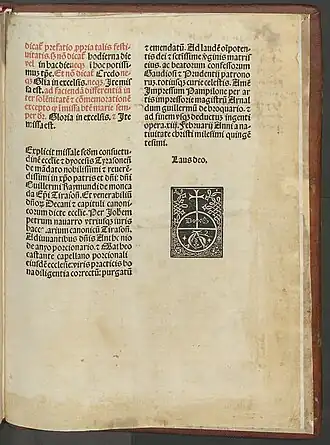 dicať prefatio ꝓpria talis festi-
uitatis: & nō dicať hodierna die
vel in hac die: neqꝫ hoc potissi-
mum tp̄e. Et nō dicať Credo ne-
qꝫ Glia in excelsis. neqꝫ Ite missa
est. ad faciendā differentiā in
ter solēnitatē & cōmemorationē
excepto ꝙ i missa btē marie sem-
per dr̄. Gloria in excelsis. & Ite
missa est.
Explicit missale scd̄m consuetu-
dinē ecclie & dyocesis Tyrasonen̄.
de mādato nobilissimi & reueren-
dissimi in xp̄o patris et dn̄i: dn̄i
Guillermi Raymundi de monca-
da Ep̄i Tirasoñ. Et venerabiliū
dn̄oꝝ Decani et capituli canoni-
coruꝫ dicte ecclie. Per Johem̄
petrum nauarro vtriusqꝫ iuris
bacc alarium canonicū Tirasoñ.
Adiuuantibus dn̄is Anthonio
de anyo porcionario: & Matheo
castante capellano porcionali
eiusdē ecclesie: viris practicis bo-
na diligentia correctū: purgatū
& emendatū. Ad laudē oīpoten-
tis dei & serissime v̄ginis matris
eius. ac beatorum confessorum
Gaudiosi & Prudentii patrono
ruꝫ. totiusqꝫ curie celestis. Amē
Impressum Pampilone per ar-
tis impressorie magistruꝫ Arnal
dum guillermū de broquario. &
ad finem vsqꝫ deductuꝫ ingenti
opera. xiij. Februarij Anni a na-
tiuitate christi milesimi quingē
tesimi.
Laus deo.